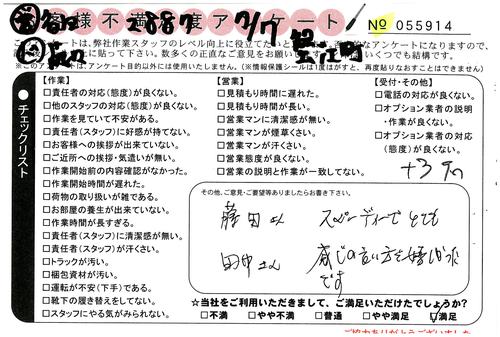 お客様不満足度アンケート! № 055914
2887 7/7
アンケートは、弊社作業スタッフのレベル向上に役立てたいと
下さい。数多くの正直なご意見をお願い いくつでも結構です。
※このアンケートは、アンケート目的以外には使用いたしません。(※情報保護シールは1度はがすと、再度貼りなおすことはできません)
チェックリスト
【作業】
□責任者の対応(態度)が良くない。
□他のスタッフの対応(態度)が良くない。
□作業を見ていて不安がある。
□責任者(スタッフ)に好感が持てない。
□お客様への挨拶が出来ていない。
□ご近所への挨拶・気遣いが無い。
□作業開始前の内容確認がなかった。
□作業開始時間が遅れた。
□荷物の取り扱いが雑である。
□お部屋の養生が出来ていない。
□作業時間が長すぎる。
□責任者(スタッフ)に清潔感が無い。
□責任者(スタッフ)が汗くさい。
□トラックが汚い。
□梱包資材が汚い。
□運転が不安(下手)である。
□靴下の履き替えをしてない。
□スタッフにやる気がみられない。
【営業】
□見積もり時間に遅れた。
□見積もり時間が長い。
□営業マンに清潔感が無い。
□営業マンが煙草くさい。
□営業マンが汗くさい。
□営業態度が良くない。
□営業の説明と作業が一致してない。
【受付・その他】
□電話の対応が良くない。
□オプション業者の説明
・作業が良くない。
□オプション業者の対応
(態度)が良くない。
+3
その他、ご意見・ご要望等ありましたらお書き下さい。
藤田さん スペーディーでとても
田中さん 感じの良い方で嬉しかった
です
☆当社をご利用いただきまして、ご満足いただけてしょうか?
□不満 □やや不満 □普通 □やや満足 ☑満足
ご協力ありがとうございました